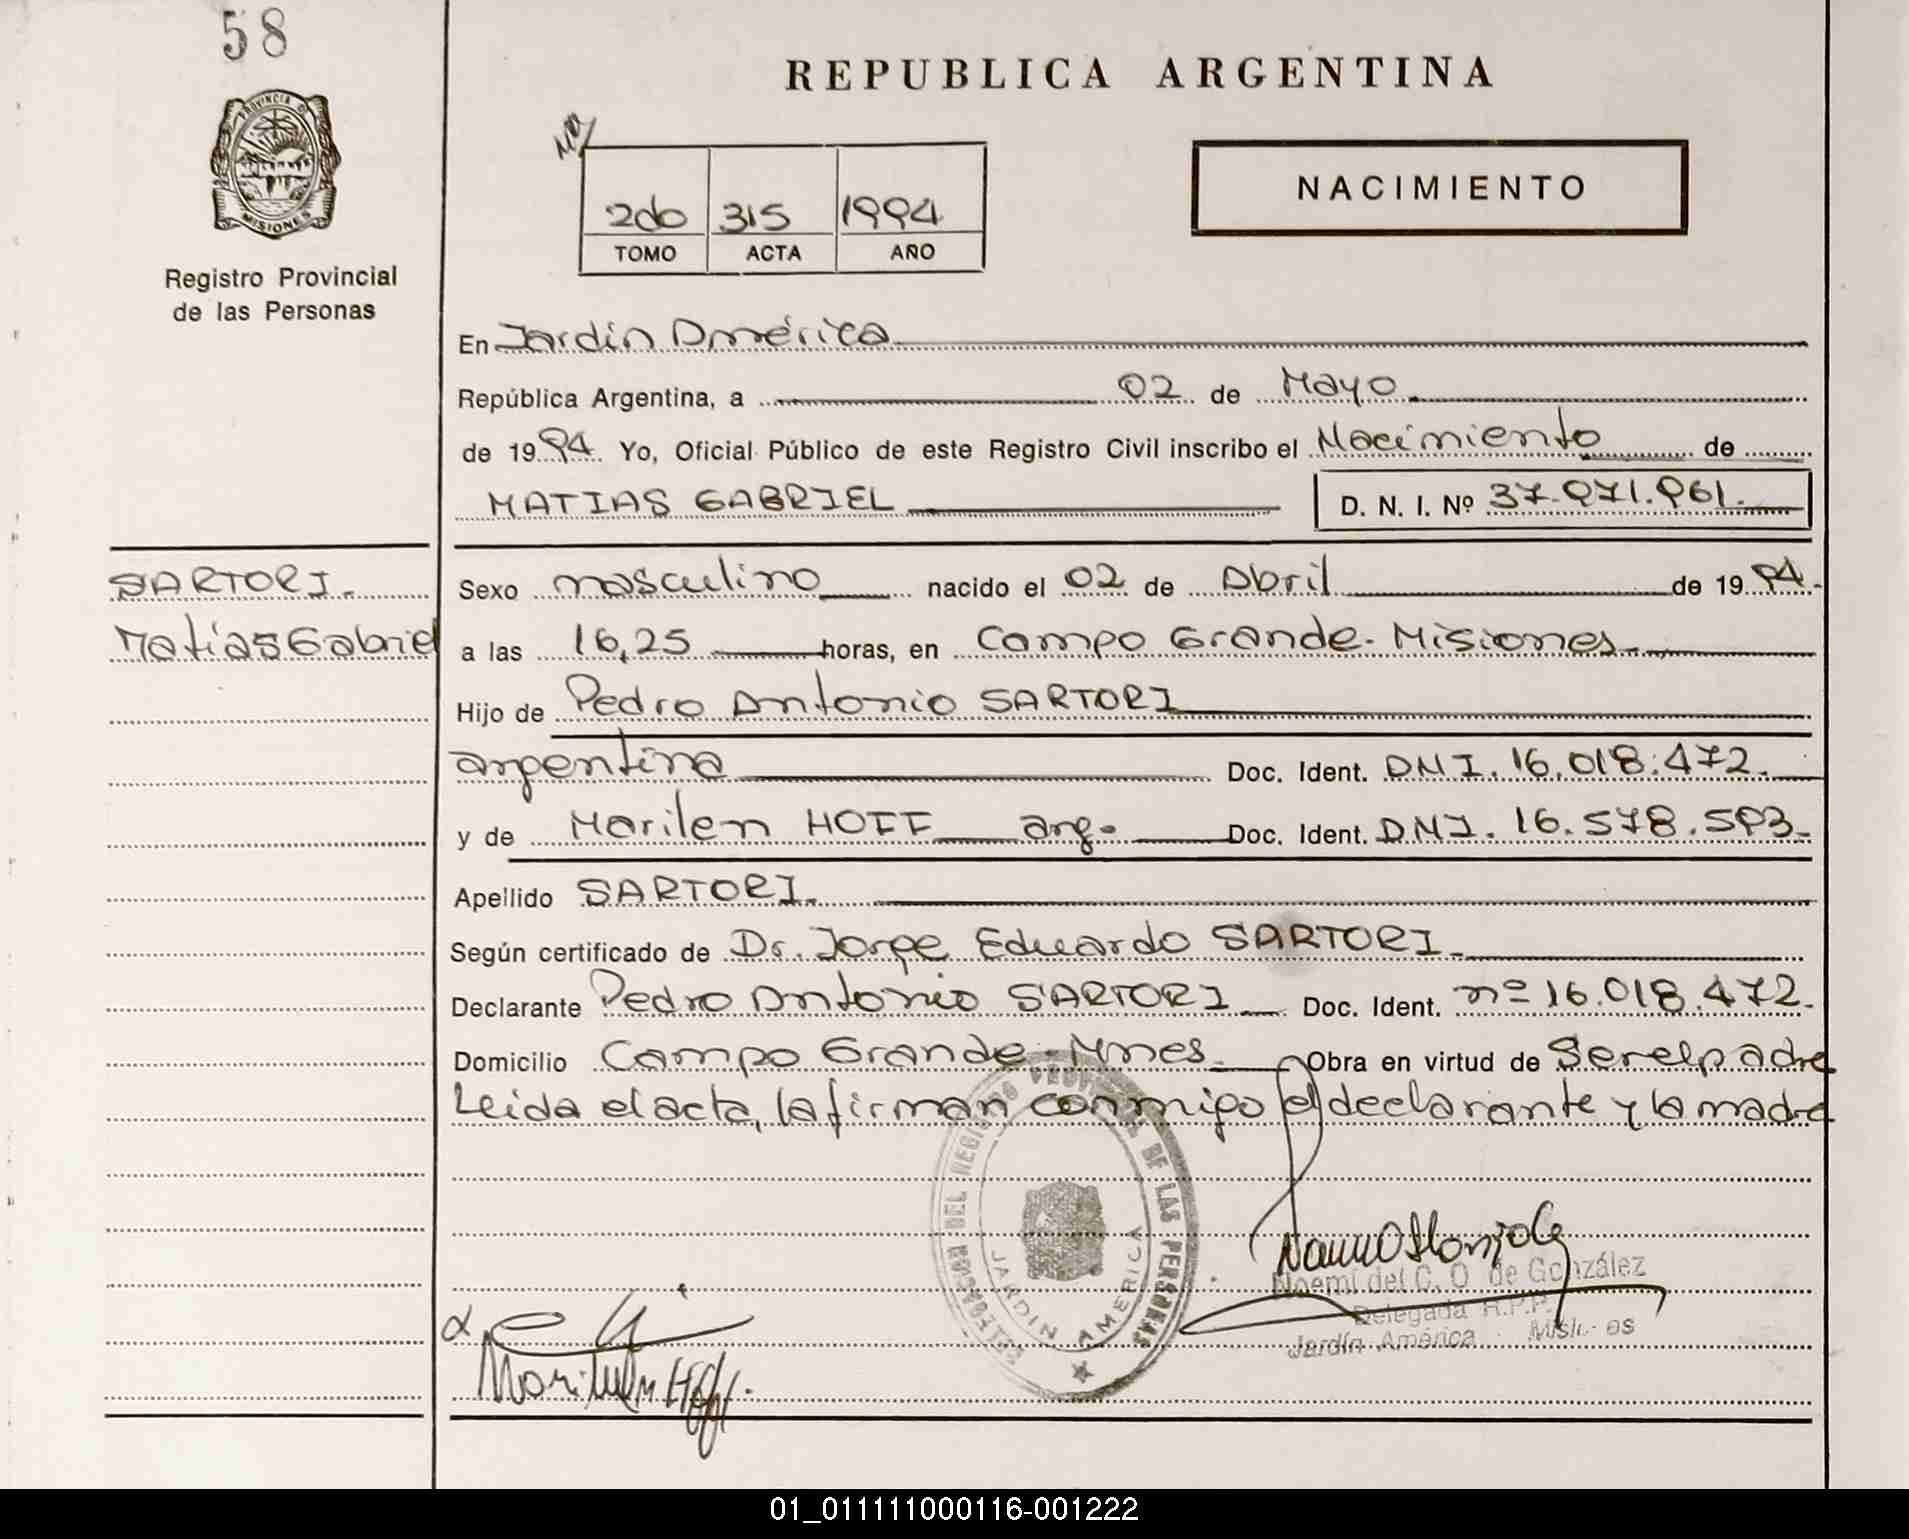 58
REPUBLICA ARGENTINA
PROVINCIA D
MISIONES
Registro Provincial
de las Personas
2do 315 1994
TOMO ACTA AÑO
NACIMIENTO
En Jardín América
República Argentina, a 02 de Mayo
de 1994 Yo, Oficial Público de este Registro Civil inscribo el Nacimiento de
MATIAS GABRIEL D. N. I. Nº 37.971.961.
SARTORI.
Matías Gabriel
Sexo masculino nacido el 02 de Abril de 1994.
a las 16,25 horas, en Campo Grande. Misiones.
Hijo de Pedro Antonio SARTORI
argentina Doc. Ident. DNI. 16.018.472.
y de Marilen HOFF arg. Doc. Ident. DNI. 16.578.593.
Apellido SARTORI.
Según certificado de Dr. Jorge Eduardo SARTORI.
Declarante Pedro Antonio SARTORI Doc. Ident. nº 16.018.472.
Domicilio Campo Grande. Mnes. Obra en virtud de Ser el padre
Leida el acta, la firman conmigo el declarante y la madre
DELEGACION DEL REGISTRO PROVINCIAL DE LAS PERSONAS
JARDIN AMERICA
Noemí del C. O. de González
Delegada R.P.P.
Jardín América Misiones
Marilen Hoff.
01_011111000116-001222